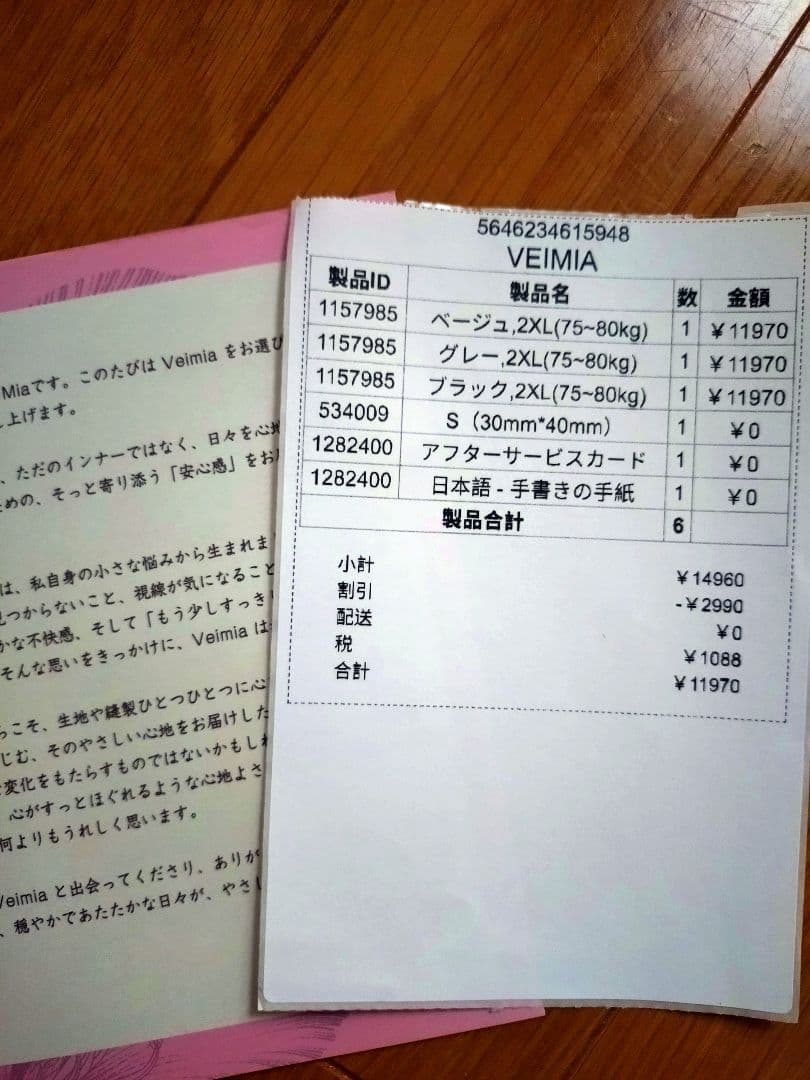 Miaです。このたびは Veimia をお選び
し上げます。
、ただのインナーではなく、日々を心地
ための、そっと寄り添う「安心感」をお
は、私自身の小さな悩みから生まれま
見つからないこと、視線が気になること
かな不快感、そして「もう少しすっきり
そんな思いをきっかけに、Veimia は
らこそ、生地や縫製ひとつひとつに心
じむ、そのやさしい心地をお届けした
な変化をもたらすものではないかもしれ
、心がすっとほぐれるような心地よさ
何よりもうれしく思います。
Veimia と出会ってくださり、ありが
、穏やかであたたかな日々が、やさし
5646234615948
VEIMIA
製品ID 製品名 数 金額
1157985 ベージュ,2XL(75~80kg) 1 ￥11970
1157985 グレー,2XL(75~80kg) 1 ￥11970
1157985 ブラック,2XL(75~80kg) 1 ￥11970
534009 S（30mm*40mm） 1 ￥0
1282400 アフターサービスカード 1 ￥0
1282400 日本語 - 手書きの手紙 1 ￥0
製品合計 6
小計 ￥14960
割引 -￥2990
配送 ￥0
税 ￥1088
合計 ￥11970